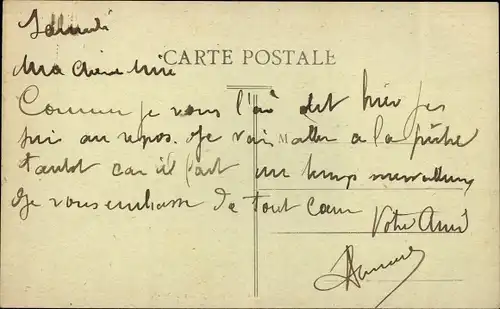 CARTE POSTALE
Ma chère Mimi
Comme je vous l'ai dit hier je
suis au repos. Je vais M aller a la pêche
tantot car il fait un temps merveilleux
Je vous embrasse de tout cœur
Votre Ami